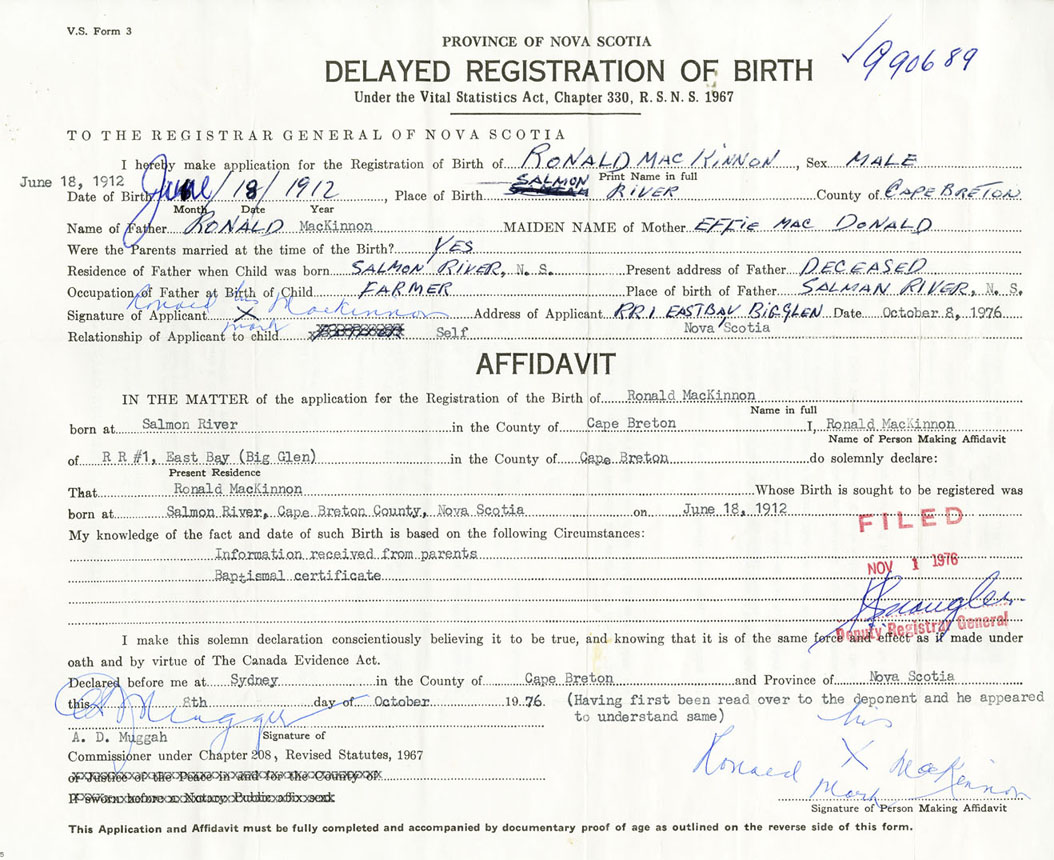 V.S. Form 3
PROVINCE OF NOVA SCOTIA
DELAYED REGISTRATION OF BIRTH
Under the Vital Statistics Act, Chapter 330, R.S.N.S. 1967
990689
TO THE REGISTRAR GENERAL OF NOVA SCOTIA
I hereby make application for the Registration of Birth of RONALD MAC KINNON, Sex MALE
Print Name in full
June 18, 1912
Date of Birth June/18/1912, Place of Birth SALMON RIVER County of CAPE BRETON
Month Date Year
Name of Father RONALD MacKinnon MAIDEN NAME of Mother EFFIE MAC DONALD
Were the Parents married at the time of the Birth? YES
Residence of Father when Child was born SALMON RIVER, N. S. Present address of Father DECEASED
Occupation of Father at Birth of Child FARMER Place of birth of Father SALMAN RIVER, N. S.
Signature of Applicant Ronald his X mark MacKinnon Address of Applicant RR1 EASTBAY BIGGLEN Date October 8, 1976
Relationship of Applicant to child Self Nova Scotia
AFFIDAVIT
IN THE MATTER of the application for the Registration of the Birth of Ronald MacKinnon
Name in full
born at Salmon River in the County of Cape Breton I, Ronald MacKinnon
Name of Person Making Affidavit
of R R #1, East Bay (Big Glen) in the County of Cape Breton do solemnly declare:
Present Residence
That Ronald MacKinnon Whose Birth is sought to be registered was
born at Salmon River, Cape Breton County, Nova Scotia on June 18, 1912
FILED
My knowledge of the fact and date of such Birth is based on the following Circumstances:
Information received from parents
NOV 1 1976
Baptismal certificate
Deputy Registrar General
I make this solemn declaration conscientiously believing it to be true, and knowing that it is of the same force and effect as if made under
oath and by virtue of The Canada Evidence Act.
Declared before me at Sydney in the County of Cape Breton and Province of Nova Scotia
this 8th day of October 1976. (Having first been read over to the deponent and he appeared
to understand same)
A D Muggah
A. D. Muggah Signature of
Commissioner under Chapter 208, Revised Statutes, 1967
or Justice of the Peace in and for the County of
If sworn before a Notary Public affix seal
his
Ronald X MacKinnon
Mark
Signature of Person Making Affidavit
This Application and Affidavit must be fully completed and accompanied by documentary proof of age as outlined on the reverse side of this form.
5